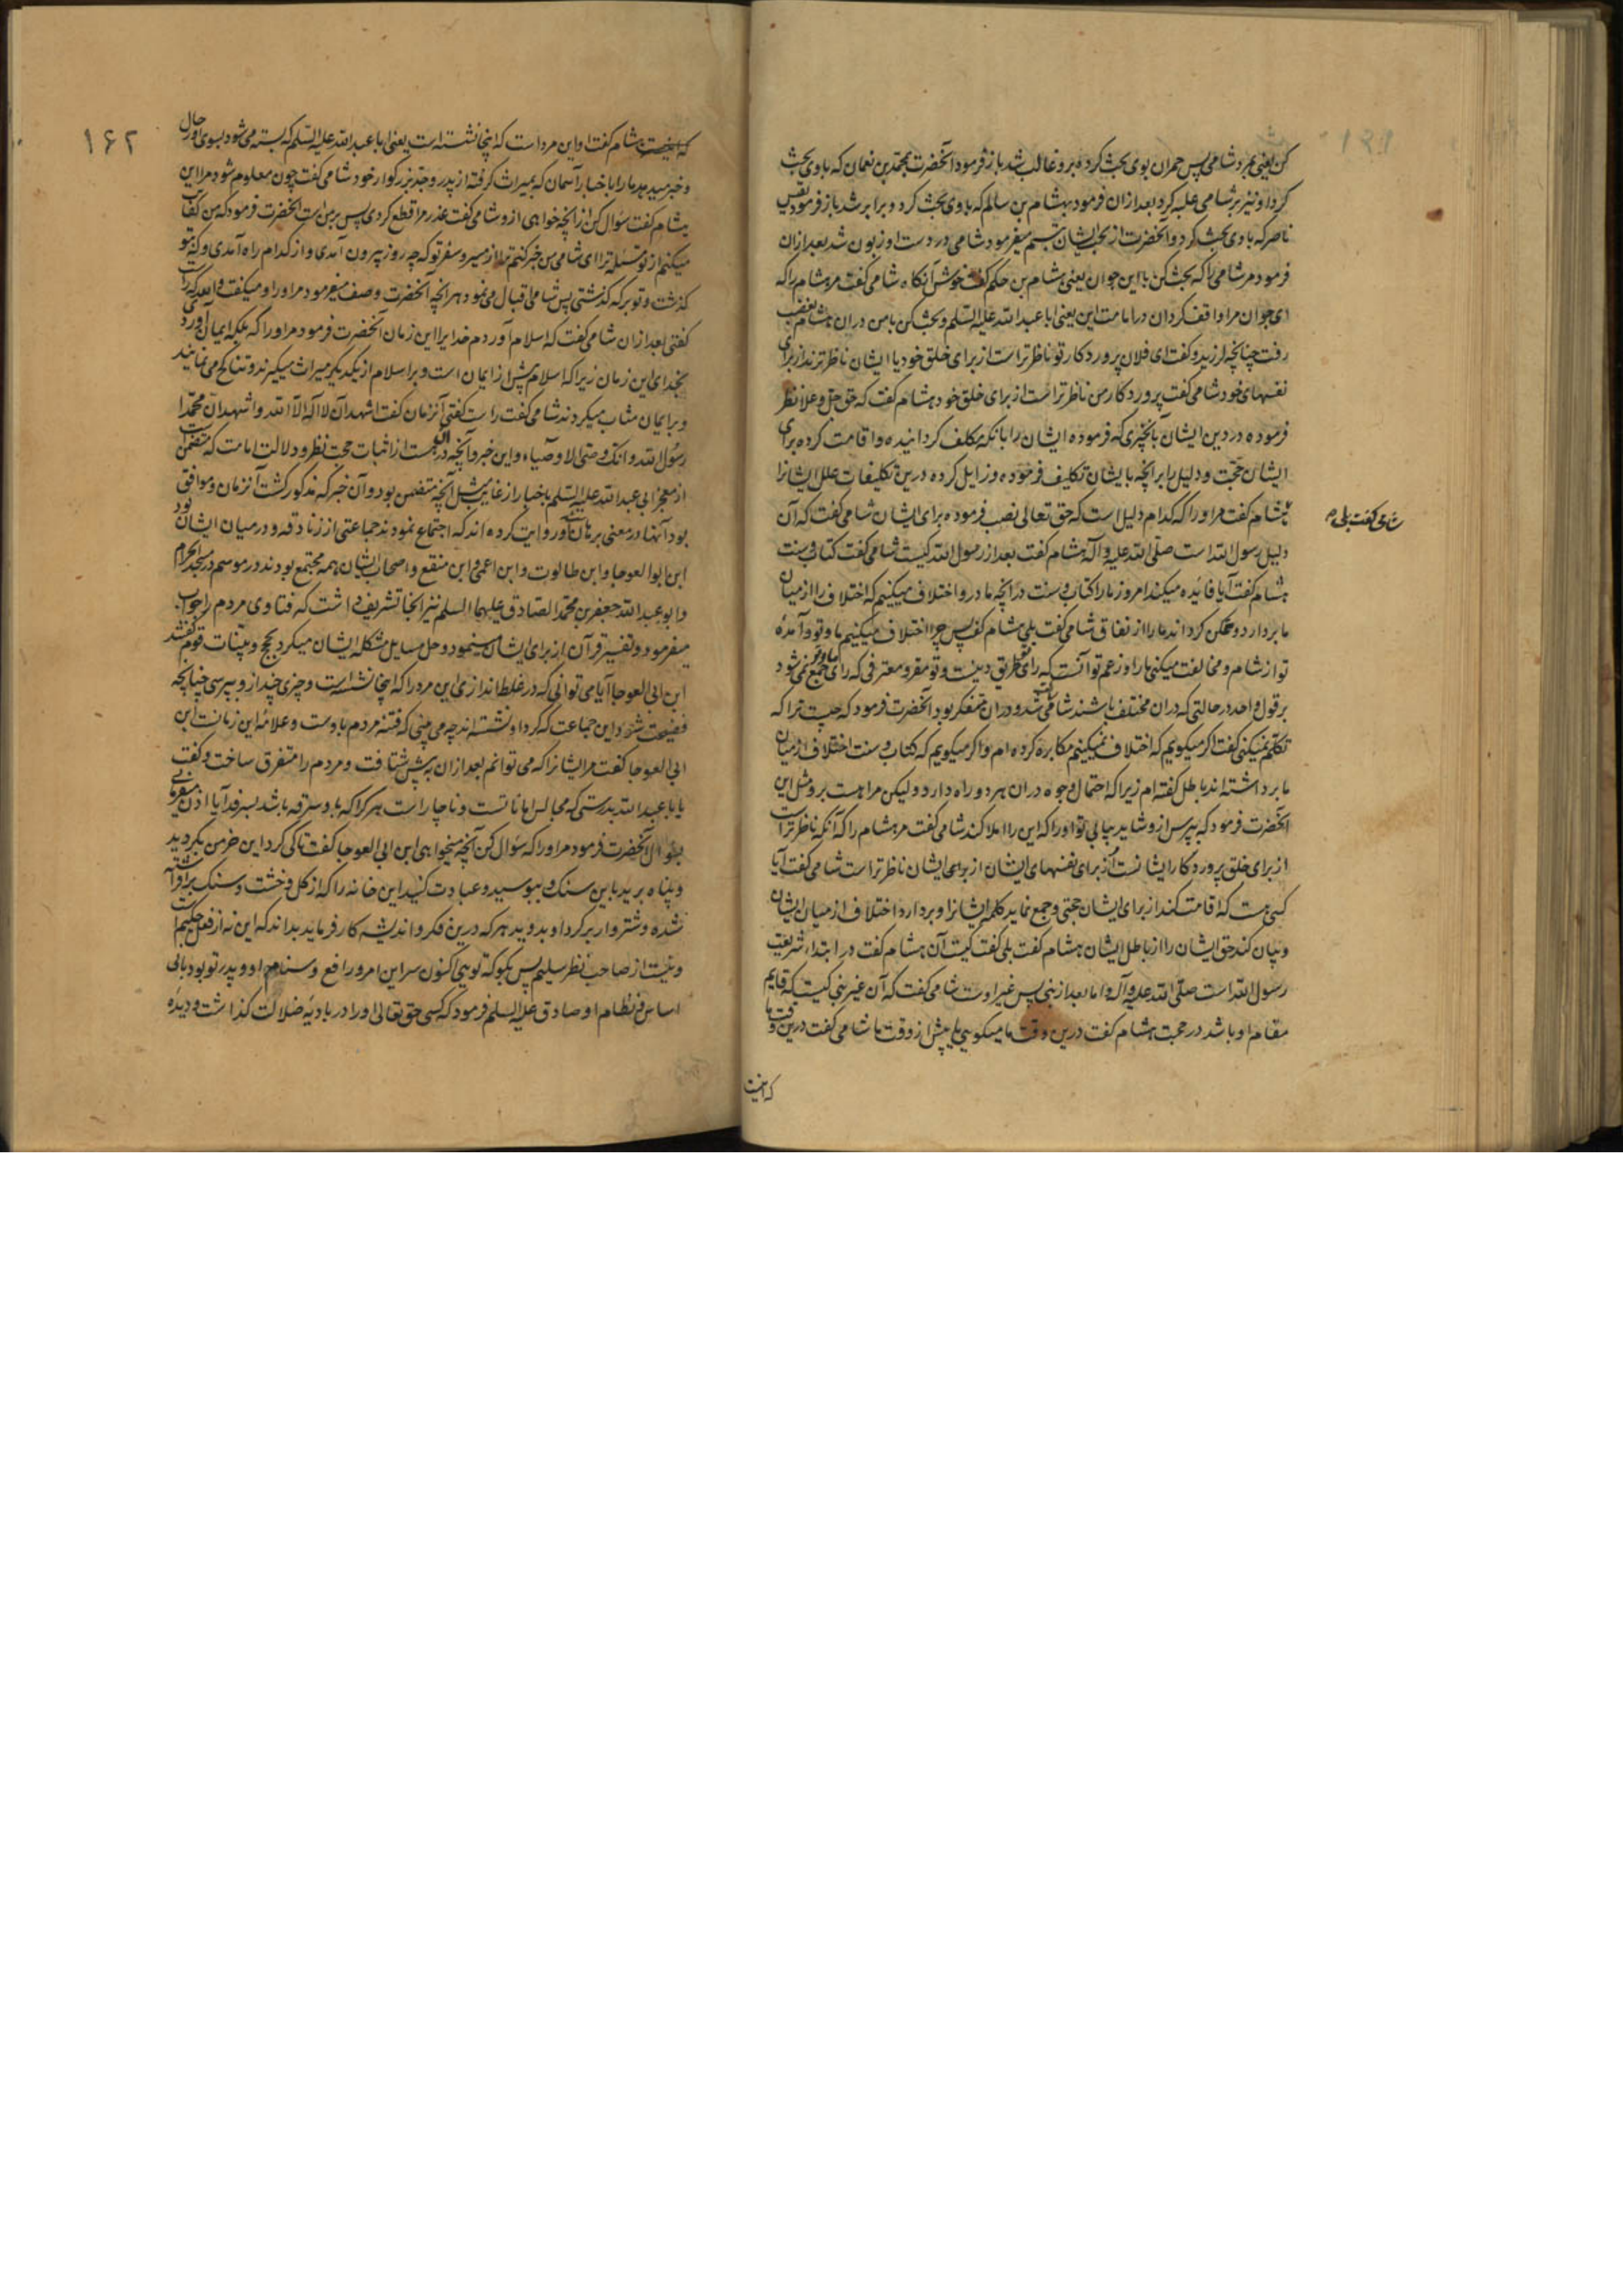 کن یعنی بمرد شامی پس حمران بوی بحث کرده برو غالب شد باز فرمود آنحضرت بمحمد بن نعمان که با وی بحث
کرد او نیز بر شامی غلبه کرد بعد از آن فرمود بهشام بن سالم که با وی بحث کرد و برابر شد باز فرمود بقیس
ناصر که با وی بحث کرد و آنحضرت از بحث ایشان تبسم میفرمود شامی در دست او زبون شد بعد از آن
فرمود مر شامی را که بحث کن با این جوان یعنی هشام بن حکم گفت خوش آنکاه شامی گفت مر هشام را که
ای جوان مرا واقف کردان در امامت این یعنی ابا عبد الله علیه السلم و بحث کن با من در آن هشام بغضب
رفت چنانچه لرزید و گفت ای فلان پروردکار تو ناظرتر است از برای خلق خود یا ایشان ناظرترند از برای
نفسهای خود شامی گفت پروردکار من ناظرتر است از برای خلق خود هشام گفت که حق جل و علا نظر
فرموده در دین ایشان بانچیزی که فرموده ایشان را بانکه مکلف کردانیده و اقامت کرده برای
ایشان حجت و دلیل را بر انچه بایشان تکلیف فرموده و زایل کرده درین تکلیفات علل ایشانرا
هشام گفت مر او را که کدام دلیل است که حق تعالی نصب فرموده برای ایشان شامی گفت که آن
شامی گفت بلی
دلیل رسول الله است صلی الله علیه و آله هشام گفت بعد از رسول الله کیست شامی گفت کتاب و سنت
هشام گفت آیا فائده میکند امروز ما را کتاب و سنت در انچه ما درو اختلاف میکنیم که اختلاف را از میان
ما بردارد و ممکن کرداند ما را از نفاق شامی گفت بلی هشام گفت پس چرا اختلاف میکنیم ما و تو و آمدهٔ
تو از شام و مخالفت میکنی ما را و زعم تو آنست که رای طریق دینست و تو مقر و معترفی که رای ما و تو جمع نمی شود
بر قول واحد در حالتی که در ان مختلف باشند شامی ساکت شد و در ان متفکر بود آنحضرت فرمود که چیست ترا که
تکلم نمیکنی گفت اگر میکویم که اختلاف نمیکنیم مکابره کرده ام و اگر میکویم که کتاب و سنت اختلاف از میان
ما برداشته اند باطل گفته ام زیرا که احتمال وجوه در ان هر دو راه دارد ولیکن مرا هست برو مثل این
انحضرت فرمود که بپرس ازو شاید بیابی تو او را که این را املا کند شامی گفت مر هشام را که آنکه ناظرتر است
از برای خلق پروردکار ایشانست از برای نفسهای ایشان از برای ایشان ناظرتر است شامی گفت آیا
کسی هست که اقامت کند از برای ایشان حجتی و جمع نماید کلمه ایشانرا و بردارد اختلاف از میان ایشان
و بیان کند حق ایشان را از باطل ایشان هشام گفت بلی گفت کیست آن هشام گفت در ابتداء شریعت
رسول الله است صلی الله علیه و آله و اما بعد از نبی پس غیر اوست شامی گفت که آن غیر نبی کیست که قایم
مقام او باشد در حجت هشام گفت درین وقت ما میکویی یا پیش از وقت ما شامی گفت درین وقت ما
که اینست
۱۶۲
که اینست هشام گفت او این مرد است که اینجا نشسته است یعنی ابا عبد الله علیه السلم که بسته می شود بسوی او رحال
و خبر میدهد ما را باخبار آسمان که بمیراث گرفته از پدر و جد بزرگوار خود شامی گفت چون معلوم شود مرا این
هشام گفت سؤال کن از انچه خواهی ازو شامی گفت عذر مرا قطع کردی پس بر من است انحضرت فرمود که من کفایت
میکنم از تو مسئله ترا ای شامی من خبر کنم ترا از مسیر و سفر تو که چه روز بیرون آمدی و از کدام راه آمدی و که بتو
گذشت و تو بر که گذشتی پس شامی اقبال می نمود هر انچه آنحضرت وصف میفرمود مر او را و میگفت والله که راست
گفتی بعد از ان شامی گفت که اسلام آوردم خدایرا این زمان آنحضرت فرمود مر او را که بلکه ایمان آوردی
بخدای این زمان زیرا که اسلام پیش از ایمان است و بر اسلام از یکدیگر میراث میگیرند و تناکح می نمایند
و بر ایمان مثاب میگردند شامی گفت راست گفتی آنزمان گفت اشهد ان لا اله الا الله و اشهد ان محمدا
رسول الله و انک وصی الاوصیاء و این خبر و آنچه در وست از اثبات حجت نظر و دلالت امامت که متضمن است
از معجز ابی عبد الله علیه السلم باخبار از غایب مثل آنچه متضمن بود و آن خبر که مذکور گشت آنزمان و موافق بود
بود آنها در معنی برهان و روایت کرده اند که اجتماع نمودند جماعتی از زنادقه و در میان ایشان
ابن ابو العوجا و ابن طالوت و ابن اعمی و ابن مقفع و اصحاب ایشان همه مجتمع بودند در موسم در مسجد الحرام
و ابو عبد الله جعفر بن محمد الصادق علیهما السلم نیز انجا تشریف داشت که فتاوی مردم را جواب
میفرمود و تفسیر قرآن از برای ایشان مینمود و حل مسایل مشکله ایشان میکرد بحجج و بینات قوم گفتند
ابن ابی العوجا آیا می توانی که در غلط اندازی این مرد را که اینجا نشسته است و چیزی چند ازو بپرسی چنانچه
فضیحت شود این جماعت که گرد او نشسته اند چه می بینی که فتنه مردم باوست و علامه این زمانست ابن
ابی العوجا گفت مر ایشانرا که می توانم بعد از ان پیش شتافت و مردم را متفرق ساخت و گفت
یا ابا عبد الله بدرستی که مجالس اماناتست و ناچار است هر کرا که باو سرفه باشد بسرفد آیا اذن میفرمایی
بسؤال آنحضرت فرمود مر او را که سؤال کن آنچه میخواهی ابن ابی العوجا گفت تا کی گرد این خرمن بگردید
و پناه برید باین سنک و ببوسید و عبادت کنید این خانه را که از گل و خشت و سنک برافراشته
شده و شتروار بر گرد او بدوید هر که درین فکر و اندیشه کار فرماید بداند که این نه از فعل حکیم است
و نیست از صاحب نظر سلیم پس بگو که تویی اکنون سر این امور رافع و سنام او و پدر تو بود بانی
اساس و نظام او صادق علیه السلم فرمود که کسی حق تعالی او را در بادیهٔ ضلالت گذاشت و دیده